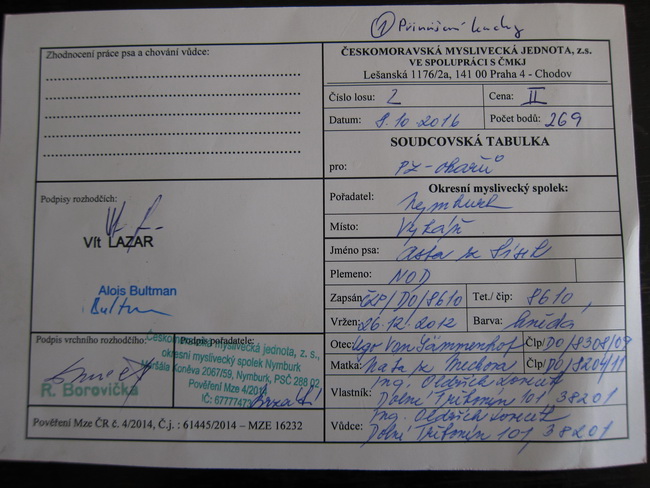 ① Přinášení kachny
Zhodnocení práce psa a chování vůdce:
ČESKOMORAVSKÁ MYSLIVECKÁ JEDNOTA, z.s.
VE SPOLUPRÁCI S ČMKJ
Lešanská 1176/2a, 141 00 Praha 4 - Chodov
Číslo losu: 2 Cena: II
Datum: 8.10.2016 Počet bodů: 269
SOUDCOVSKÁ TABULKA
pro: PZ-ohařů
Okresní myslivecký spolek:
Pořadatel: Nymburk
Místo: Vykáň
Podpisy rozhodčích:
Vít LAZAR
Alois Bultman
Bultman
Jméno psa: Asta
Plemeno: NOD
Zapsán: ČLP/DO/8610 Tet./ čip: 8610
Vržen: 26.12.2012 Barva: hnědá
Otec: Von Čip/DO/8308/09
Matka: Čip/DO/8204/11
Vlastník: Ing. Oldřich
Dolní Třebonín 101 38201
Vůdce: Ing. Oldřich
Dolní Třebonín 101 38201
Podpis vrchního rozhodčího:
R. Borovička
Podpis pořadatele:
Českomoravská myslivecká jednota, z. s.,
okresní myslivecký spolek Nymburk
Maršála Koněva 2067/59, Nymburk, PSČ 288 02
Pověření Mze 4/2014
IČ: 67777473
Pověření Mze ČR č. 4/2014, Č.j. : 61445/2014 – MZE 16232